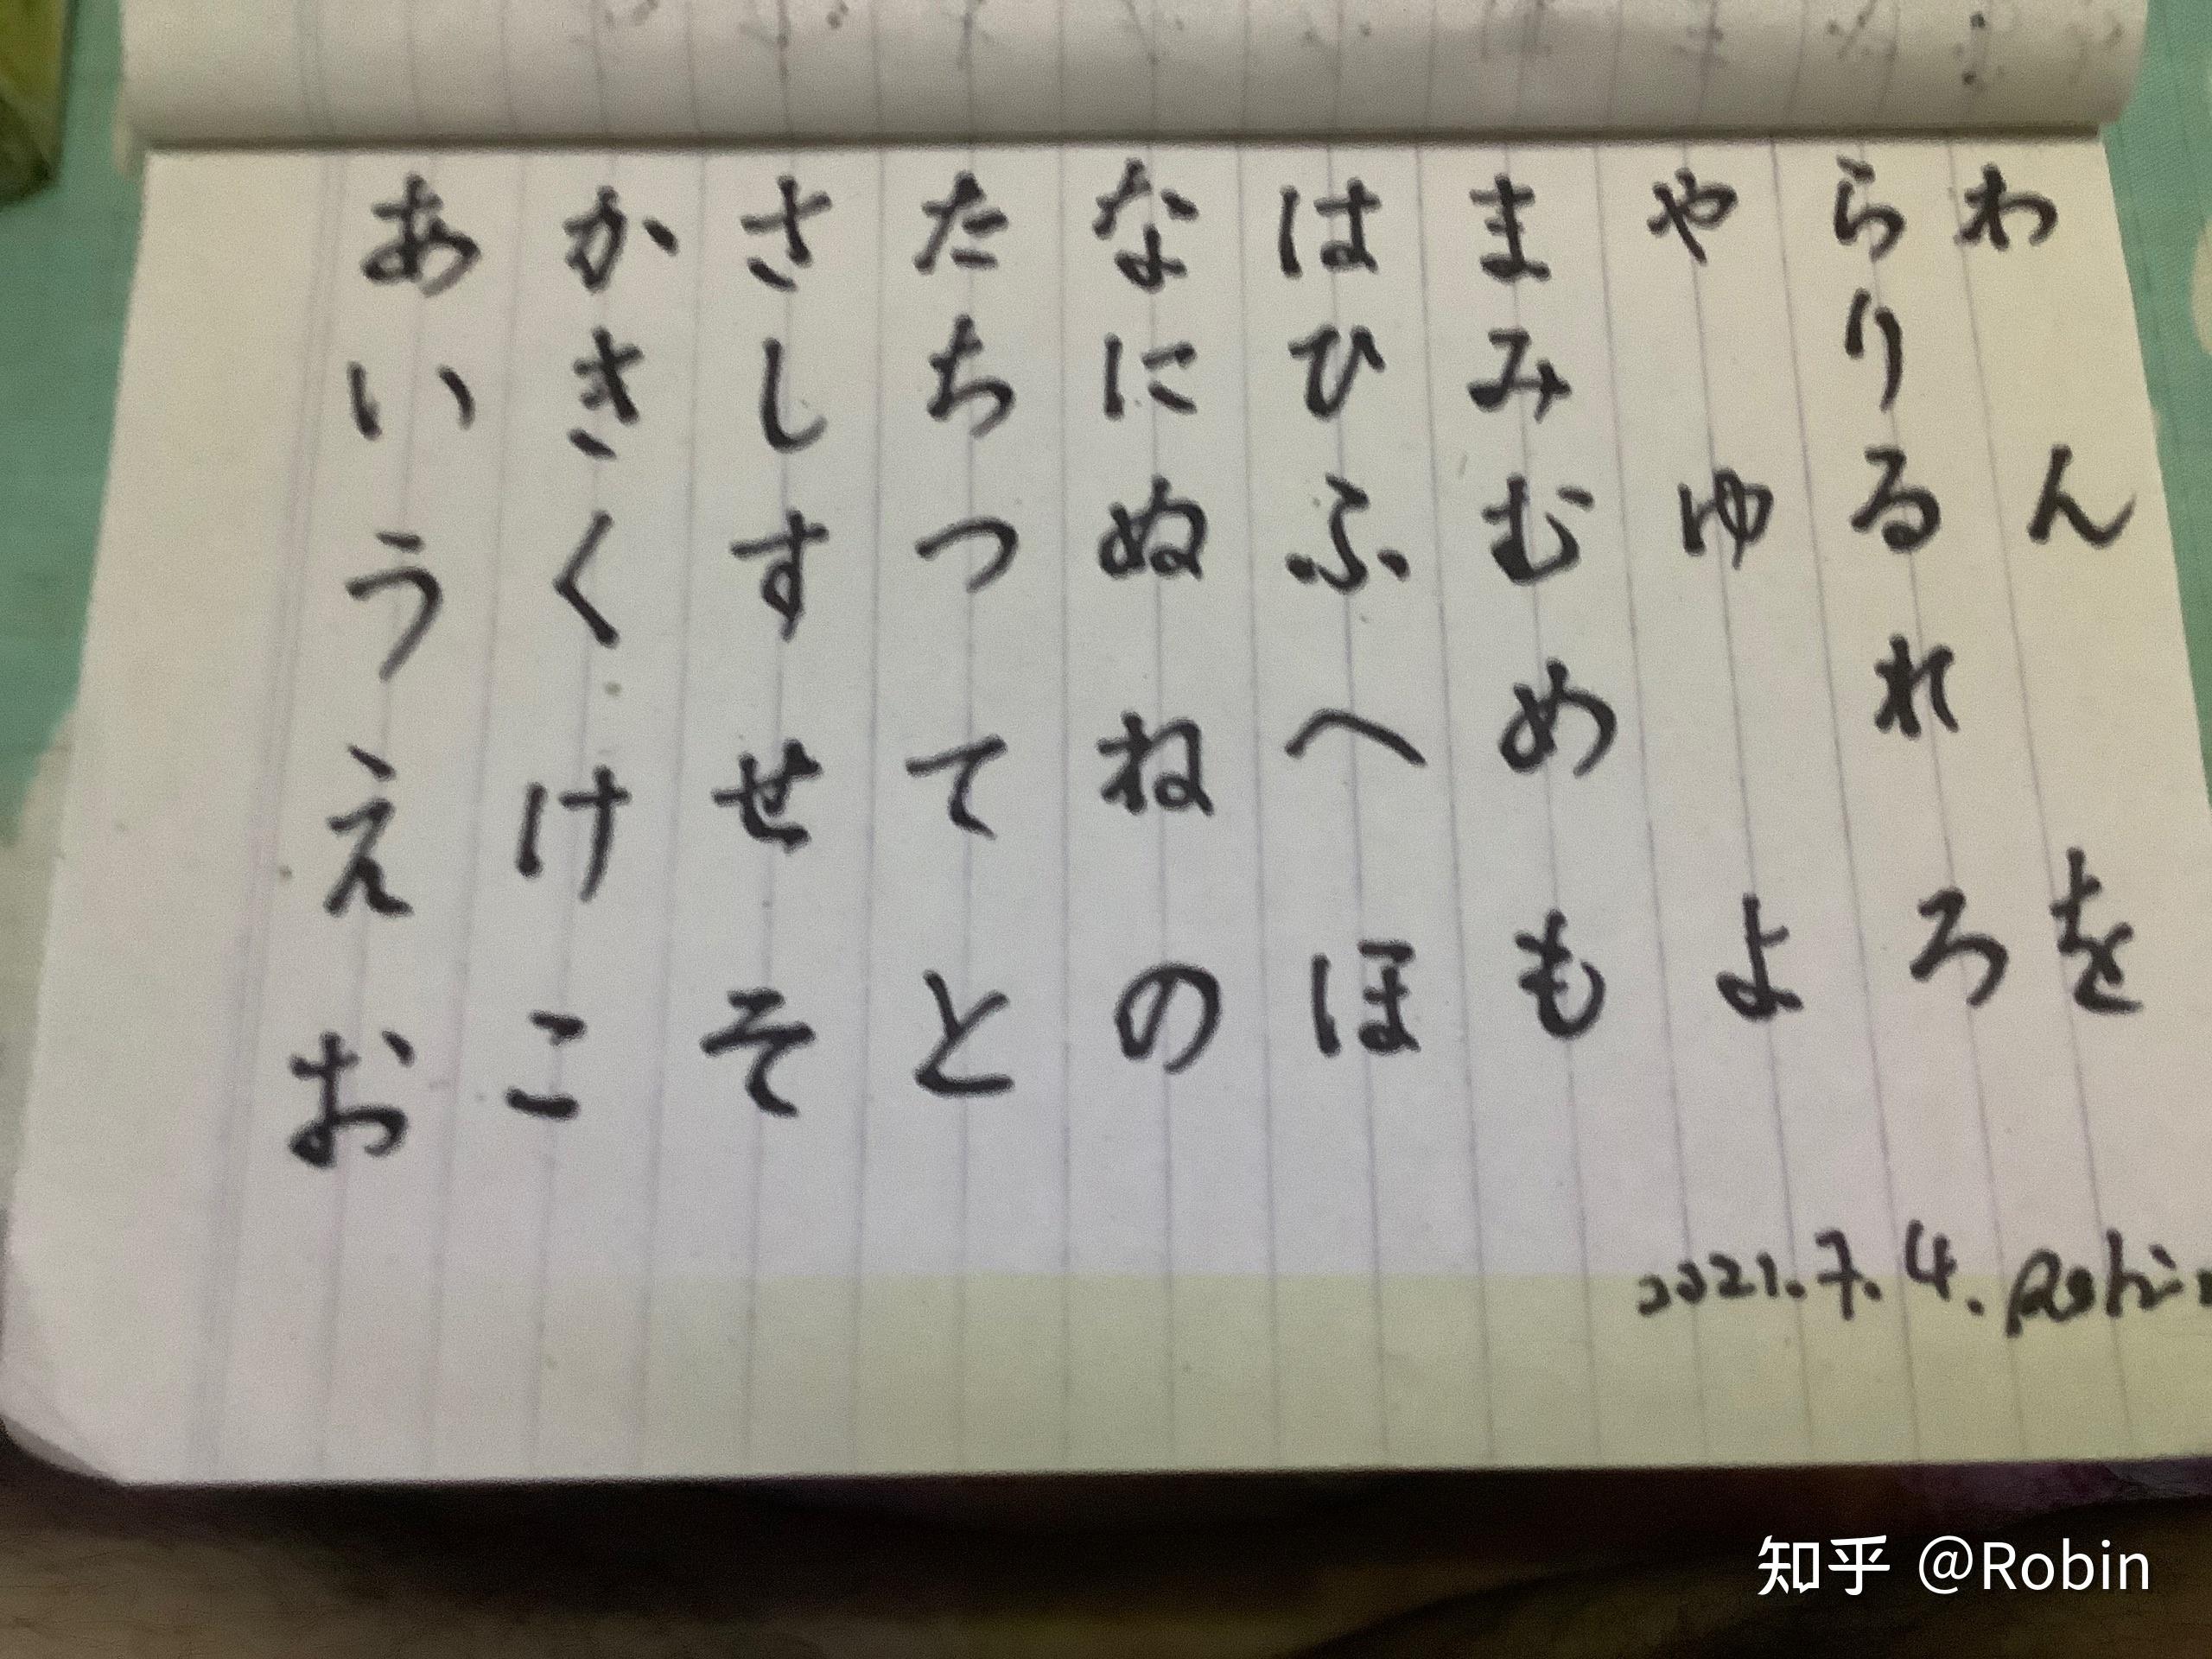 あ か さ た な は ま や ら わ
い き し ち に ひ み り
う く す つ ぬ ふ む ゆ る ん
え け せ て ね へ め れ
お こ そ と の ほ も よ ろ を
2021.7.4. Robin
知乎 @Robin